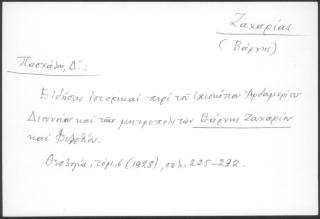 Ζαχαρίας
(Βάρνης)
Πασχάλη, Δ.:
Εἰδήσεις ἱστορικαὶ περὶ τοῦ ἐπισκόπου Ἀρδαμερίου
Διονυσίου καὶ τῶν μητροπολιτῶν Βάρνης Ζαχαρίου
καὶ Φιλοθέου.
Θεολογία, τόμ. 6 (1928), σελ. 225-232.